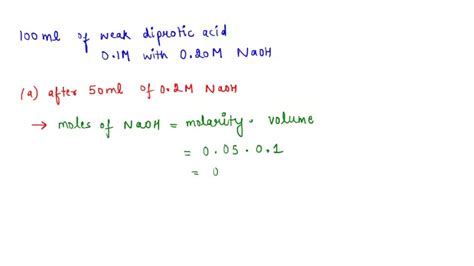 100ml of weak diprotic acid
0.1M with 0.20M NaOH
(a) after 50ml of 0.2M NaOH
→ moles of NaOH = molarity · volume
= 0.05 · 0.1
= 0